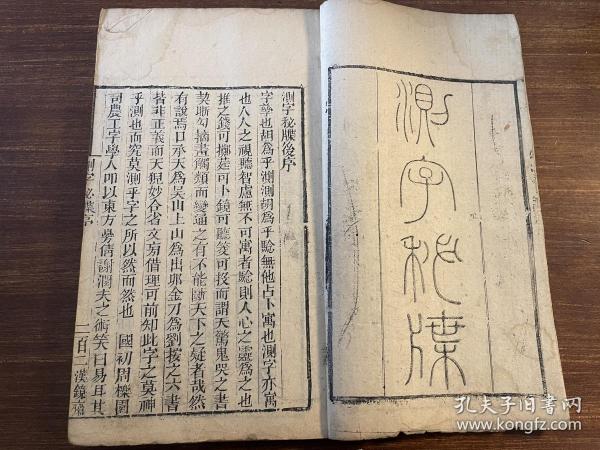 測字秘牒
測字秘牒後序
字孳也胡為乎測測胡為乎驗無他占卜寓也測字亦寓
也人人之視聽智慮無不可寓者驗則人心之靈為之也
推之錢可擲莛可卜鏡可聽筊可投而謂天驚鬼哭之書
契斷勾摘畫觸類而變通之有不能斷天下之疑者哉然
有說焉口承天為吳山上山為出卯金刀為劉按之六書
皆非正義而天猊妙合省文旁借理可前知此字之莫神
乎測也而究莫測乎字之所以然而然也 國初周櫟園
司農工字學人叩以東方曼倩謝潤夫之術笑曰易耳其
測字秘牒序
一百一
漢鏡齋
孔夫子旧书网
kongfz.com